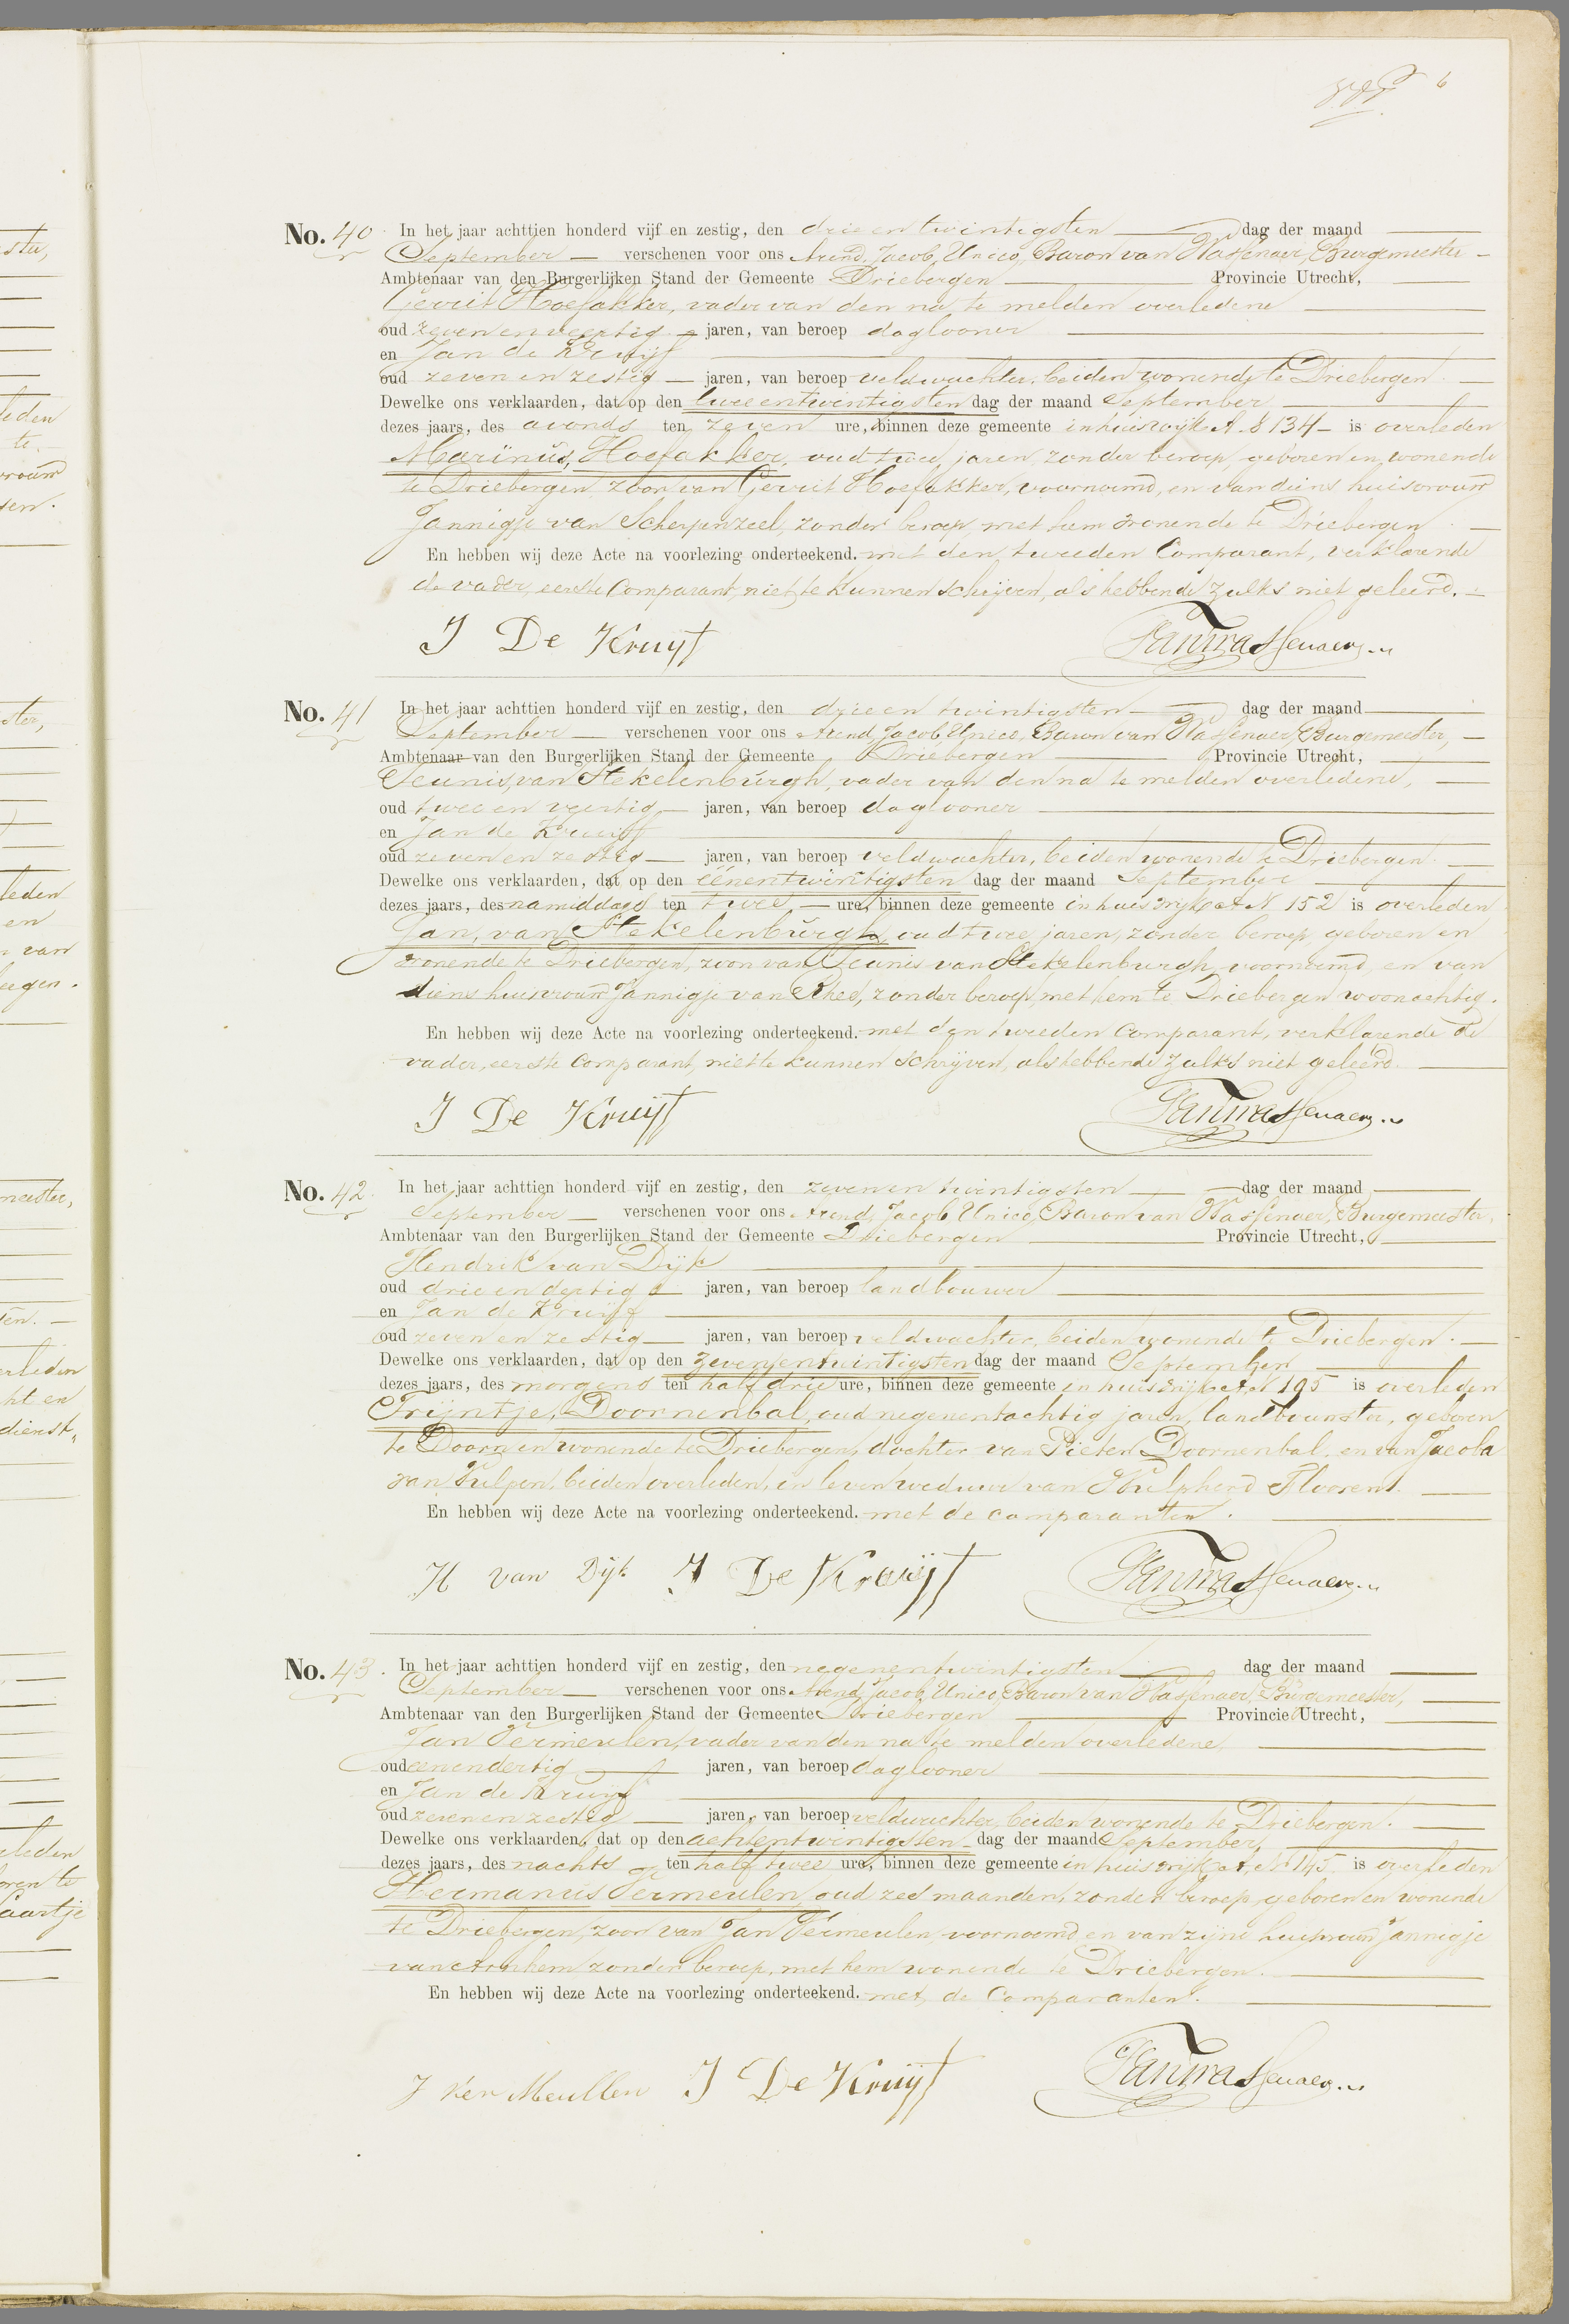 6
No. 40. In het jaar achttien honderd vijf en zestig, den drie en twintigsten dag der maand
September verschenen voor ons Arend, Jacob, Unico, Baron van Wassenaer, Burgemeester
Ambtenaar van den Burgerlijken Stand der Gemeente Driebergen Provincie Utrecht,
Gerrit Hoefakker, vader van den na te melden overledene
oud zeven en veertig jaren, van beroep daglooner
en Jan de Kruijff
oud zeven en zestig jaren, van beroep veldwachter, beiden wonende te Driebergen.
Dewelke ons verklaarden, dat op den twee entwintigsten dag der maand September
dezes jaars, des avonds ten zeven ure, binnen deze gemeente in huis wijk A N 134 is overleden
Marinus, Hoefakker, oud twee jaren, zonder beroep, geboren en wonende
te Driebergen, zoon van Gerrit Hoefakker, voornoemd, en van diens huisvrouw
Jannigje van Scherpenzeel, zonder beroep, met hem wonende te Driebergen.
En hebben wij deze Acte na voorlezing onderteekend. met den tweeden Comparant, verklarende
de vader, eerste Comparant, niet te kunnen schrijven, als hebbende zulks niet geleerd.
J De Kruyf
No. 41 In het jaar achttien honderd vijf en zestig, den drie en twintigsten dag der maand
September verschenen voor ons Arend, Jacob, Unico, Baron van Wassenaer, Burgemeester,
Ambtenaar van den Burgerlijken Stand der Gemeente Driebergen Provincie Utrecht,
Teunis, van Stekelenburgh, vader van den na te melden overledene,
oud twee en veertig jaren, van beroep daglooner
en Jan de Kruijff
oud zeven en zestig jaren, van beroep veldwachter, beiden wonende te Driebergen.
Dewelke ons verklaarden, dat op den éénentwintigsten dag der maand September
dezes jaars, des namiddags ten twee ure, binnen deze gemeente in huis wijk A N 152 is overleden
Jan, van Stekelenburgh, oud twee jaren, zonder beroep, geboren en
wonende te Driebergen, zoon van Teunis van Stekelenburgh voornoemd, en van
diens huisvrouw Jannigje van Rhee, zonder beroep, met hem te Driebergen woonachtig.
En hebben wij deze Acte na voorlezing onderteekend. met den tweeden Comparant, verklarende de
vader, eerste Comparant, niet te kunnen schrijven, als hebbende zulks niet geleerd.
J De Kruyf
No. 42. In het jaar achttien honderd vijf en zestig, den zeven en twintigsten dag der maand
September verschenen voor ons Arend, Jacob, Unico, Baron van Wassenaer, Burgemeester,
Ambtenaar van den Burgerlijken Stand der Gemeente Driebergen Provincie Utrecht,
Hendrik van Dijk
oud drie en dertig jaren, van beroep landbouwer
en Jan de Kruijff
oud zeven en zestig jaren, van beroep veldwachter, beiden wonende te Driebergen.
Dewelke ons verklaarden, dat op den zevenentwintigsten dag der maand September
dezes jaars, des morgens ten half drie ure, binnen deze gemeente in huis wijk A N 195 is overleden
Trijntje, Doornenbal, oud negenentachtig jaren, landbouwster, geboren
te Doorn en wonende te Driebergen, dochter van Pieter Doornenbal en van Jacoba
van Vulpen, beiden overleden, in leven weduwe van Wulpherd Floren.
En hebben wij deze Acte na voorlezing onderteekend. met de comparanten.
H van Dijk J De Kruijf
No. 43. In het jaar achttien honderd vijf en zestig, den negenentwintigsten dag der maand
September verschenen voor ons Arend, Jacob, Unico, Baron van Wassenaer, Burgemeester,
Ambtenaar van den Burgerlijken Stand der Gemeente Driebergen Provincie Utrecht,
Jan Vermeulen, vader van den na te melden overledene,
oud eenendertig jaren, van beroep daglooner
en Jan de Kruijf
oud zeven en zestig jaren, van beroep veldwachter, beiden wonende te Driebergen.
Dewelke ons verklaarden, dat op den achtentwintigsten dag der maand September
dezes jaars, des nachts ten half twee ure, binnen deze gemeente in huis wijk A, N 145 is overleden
Hermanus Vermeulen, oud zes maanden, zonder beroep, geboren en wonende
te Driebergen, zoon van Jan Vermeulen, voornoemd en van zijne huisvrouw Jannigje
van Arnhem zonder beroep, met hem wonende te Driebergen.
En hebben wij deze Acte na voorlezing onderteekend. met de Comparanten.
J Ver Meullen J De Kruijf